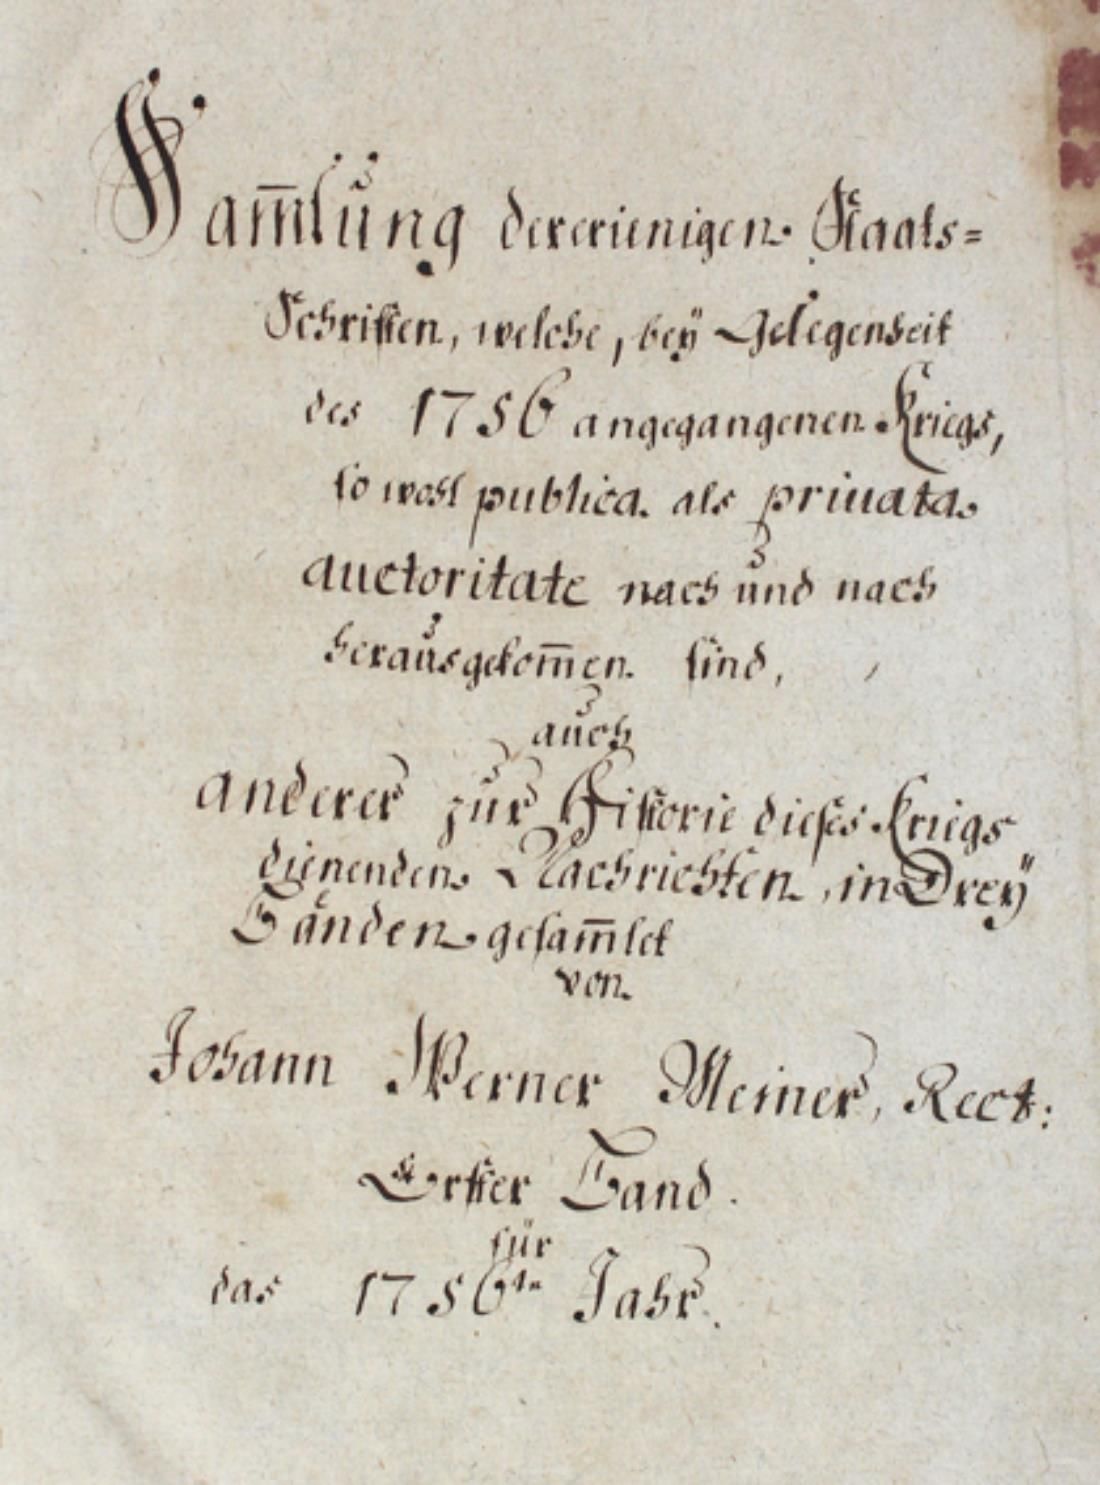 Sam̄lung dererienigen Staats=
Schrifften, welche, beÿ Gelegenheit
des 1756 angegangenen Kriegs,
so wohl publica als priuata
auctoritate nach und nach
herausgekom̄en sind,
auch
anderer zur Historie dieses Kriegs
dienenden Nachrichten, in Dreÿ
Bänden gesam̄let
von
Johann Werner Meiner, Rect:
Erster Band.
für
das 1756te Jahr.